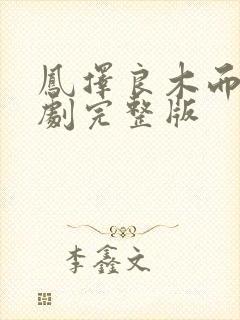 鳳擇良木而
劇完整版
李鑫文